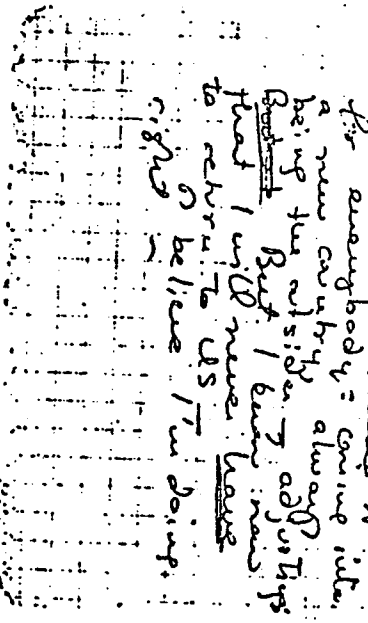 for everybody = coming into
a new country always
being the outsider & adjusting.
But I know now
that I will never have
to return to US
I believe I'm doing
right —